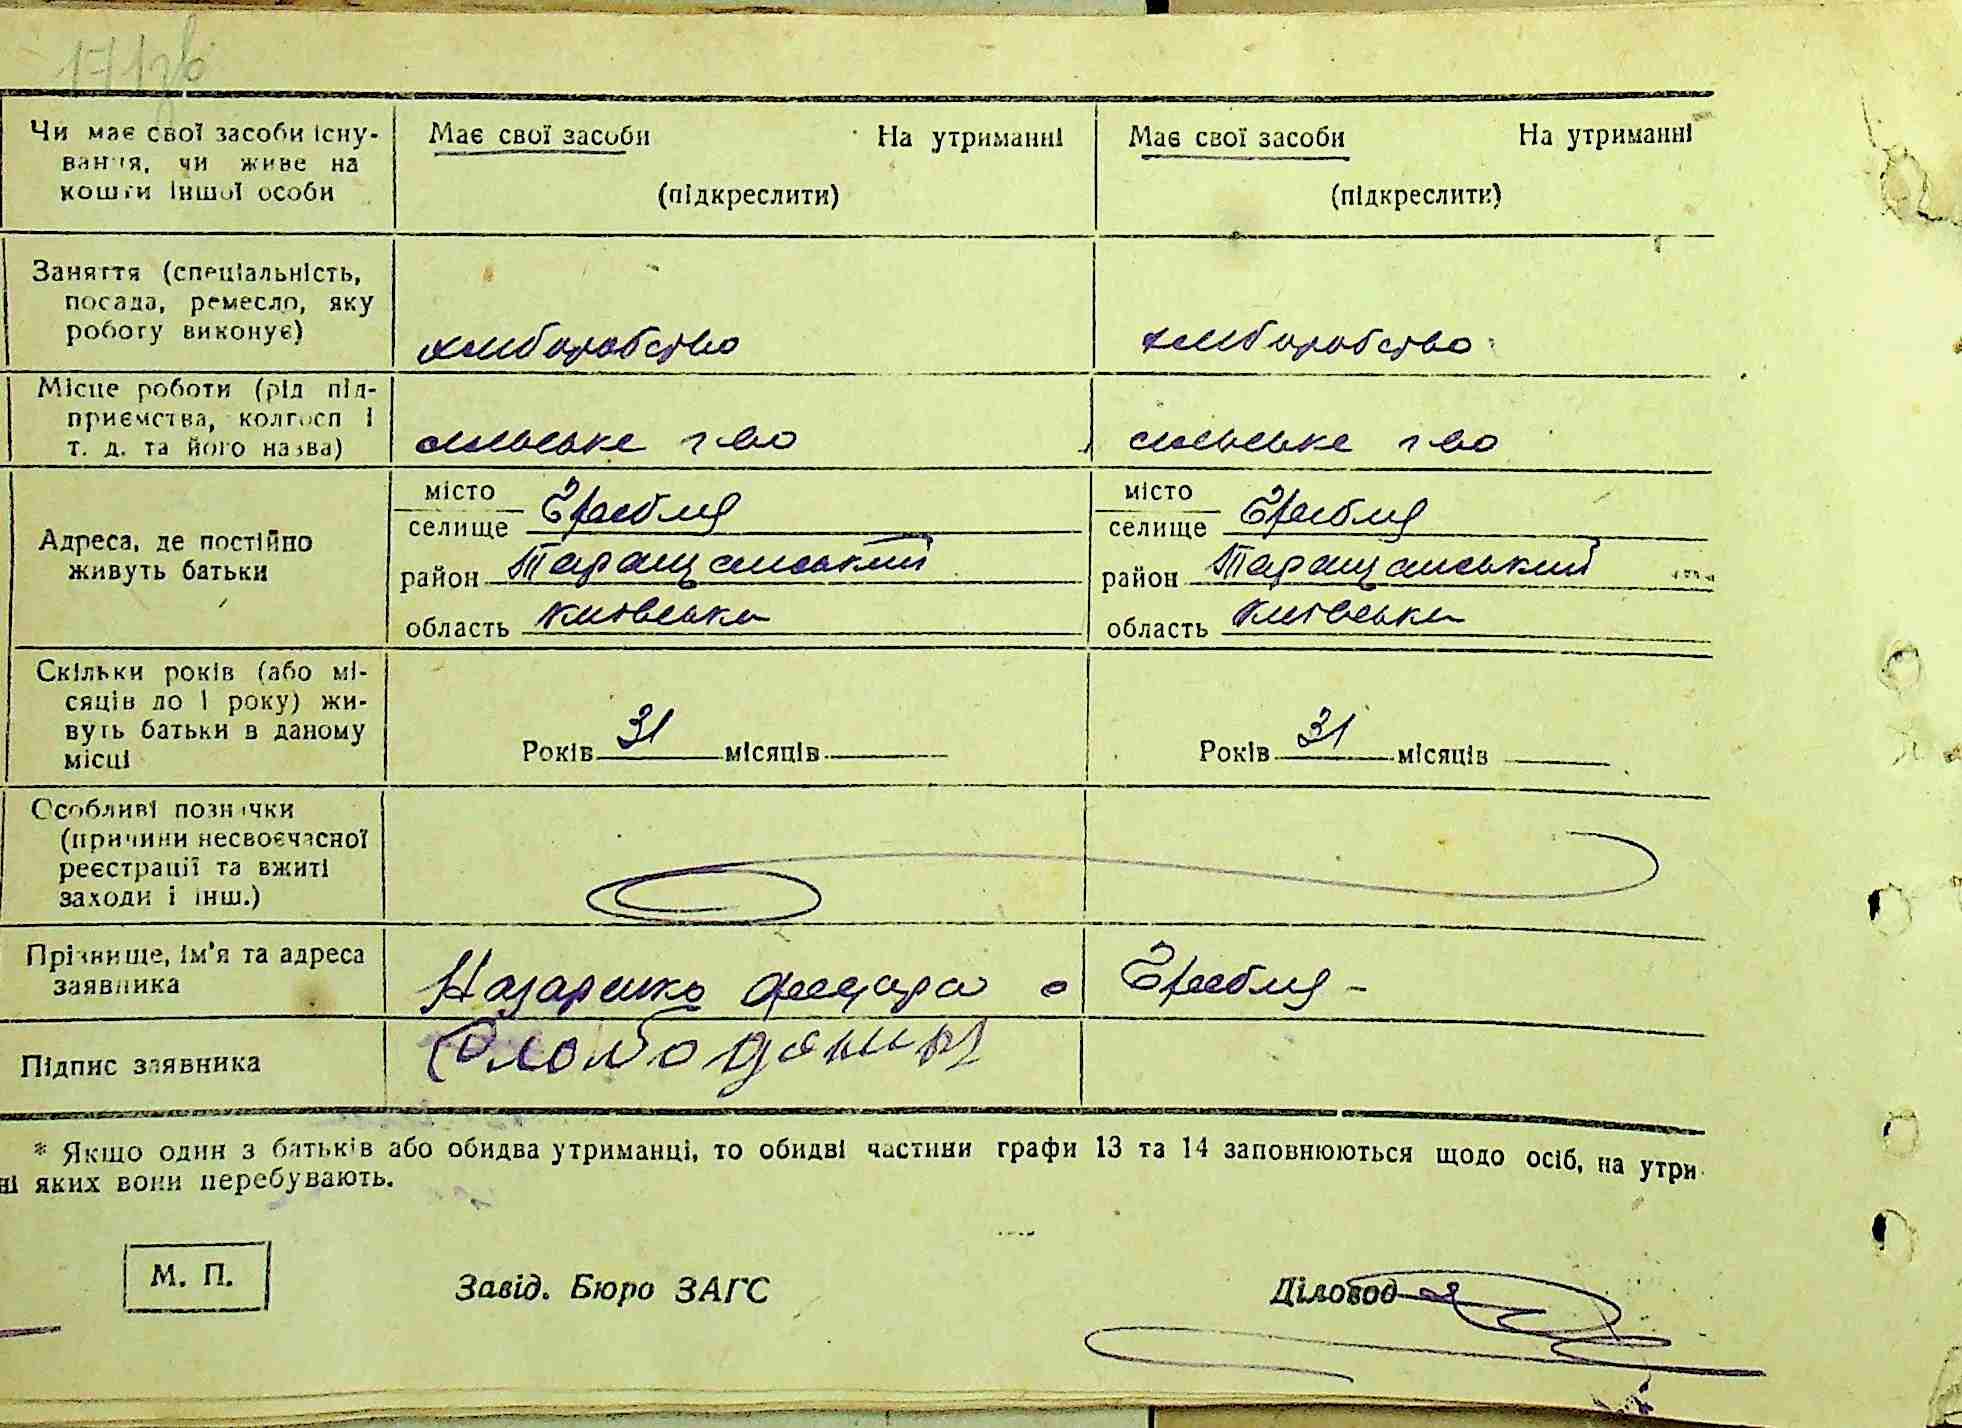 171зв
Чи має свої засоби існу-
вання, чи живе на
кошти іншої особи
Має свої засоби На утриманні
(підкреслити)
Має свої засоби На утриманні
(підкреслити)
Заняття (спеціальність,
посада, ремесло, яку
роботу виконує)
хліборобство
хліборобство
Місце роботи (рід під-
приємства, колгосп і
т. д. та його назва)
сільське г-во
сільське г-во
Адреса, де постійно
живуть батьки
місто
селище Гребля
район Таращанський
область Київська
місто
селище Гребля
район Таращанський
область Київська
Скільки років (або мі-
сяців до 1 року) жи-
вуть батьки в даному
місці
Років 31 місяців
Років 31 місяців
Особливі позначки
(причини несвоєчасної
реєстрації та вжиті
заходи і інш.)
Прізвище, ім'я та адреса
заявника
Назаренко с Гребля -
Підпис заявника
* Якщо один з батьків або обидва утриманці, то обидві частини графи 13 та 14 заповнюються щодо осіб, на утри
ні яких вони перебувають.
М. П.
Завід. Бюро ЗАГС
Діловод